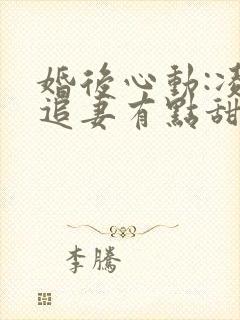 婚後心動:凌
追妻有點甜
李騰